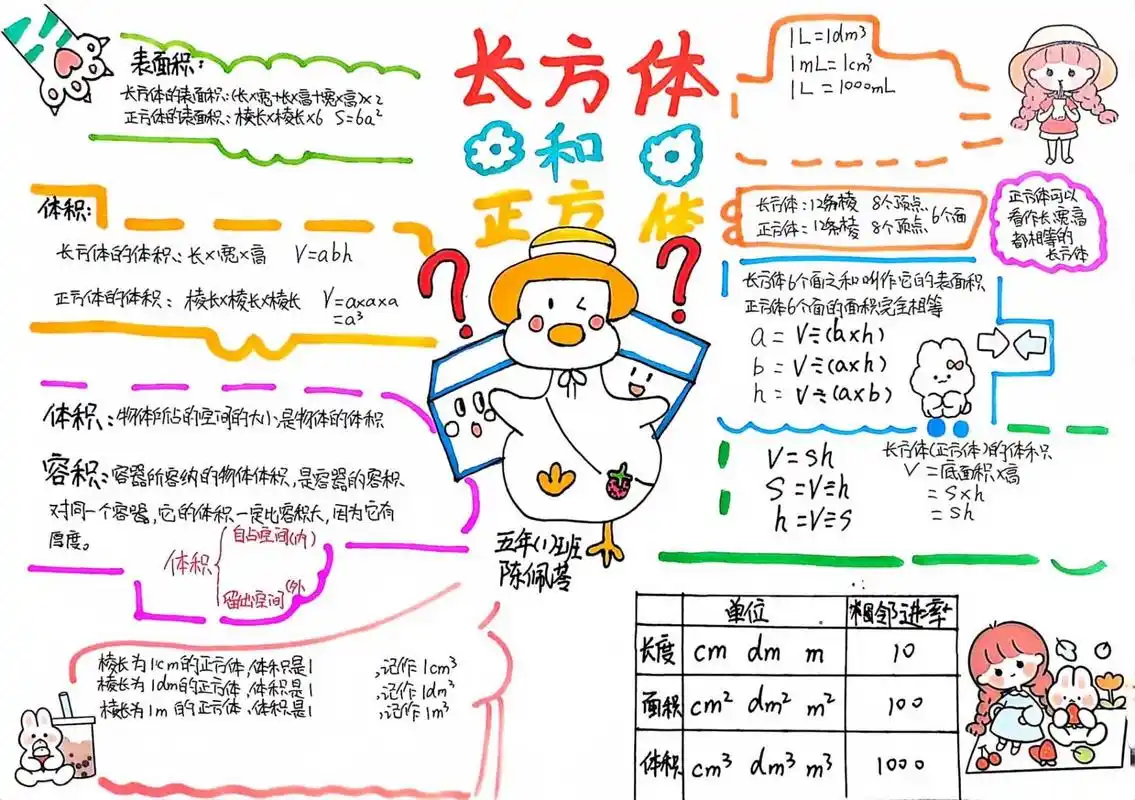 长方体
和
正方体
表面积:
长方体的表面积:(长×宽+长×高+宽×高)×2
正方体的表面积:棱长×棱长×6 S=6a²
体积:
长方体的体积:长×宽×高 V=abh
正方体的体积:棱长×棱长×棱长 V=a×a×a
=a³
体积:物体所占的空间的大小是物体的体积
容积:容器所容纳的物体体积,是容器的容积
对同一个容器,它的体积一定比容积大,因为它有
厚度。
体积
自占空间(内)
留出空间(外
棱长为1cm的正方体,体积是1 ,记作1cm³
棱长为1dm的正方体,体积是1 ,记作1dm³
棱长为1m的正方体,体积是1 ,记作1m³
? ?
五年(1)班
陈佩
1L=1dm³
1mL=1cm³
1L=1000mL
长方体:12条棱 8个顶点
正方体:12条棱 8个顶点
6个面
正方体可以
看作长宽高
都相等的
长方体
长方体6个面之和叫作它的表面积
正方体6个面的面积完全相等
a=V÷(b×h)
b=V÷(a×h)
h=V÷(a×b)
V=sh
S=V÷h
h=V÷S
长方体(正方体)的体积
V=底面积×高
=S×h
=Sh
单位 相邻进率
长度 cm dm m 10
面积 cm² dm² m² 100
体积 cm³ dm³ m³ 1000